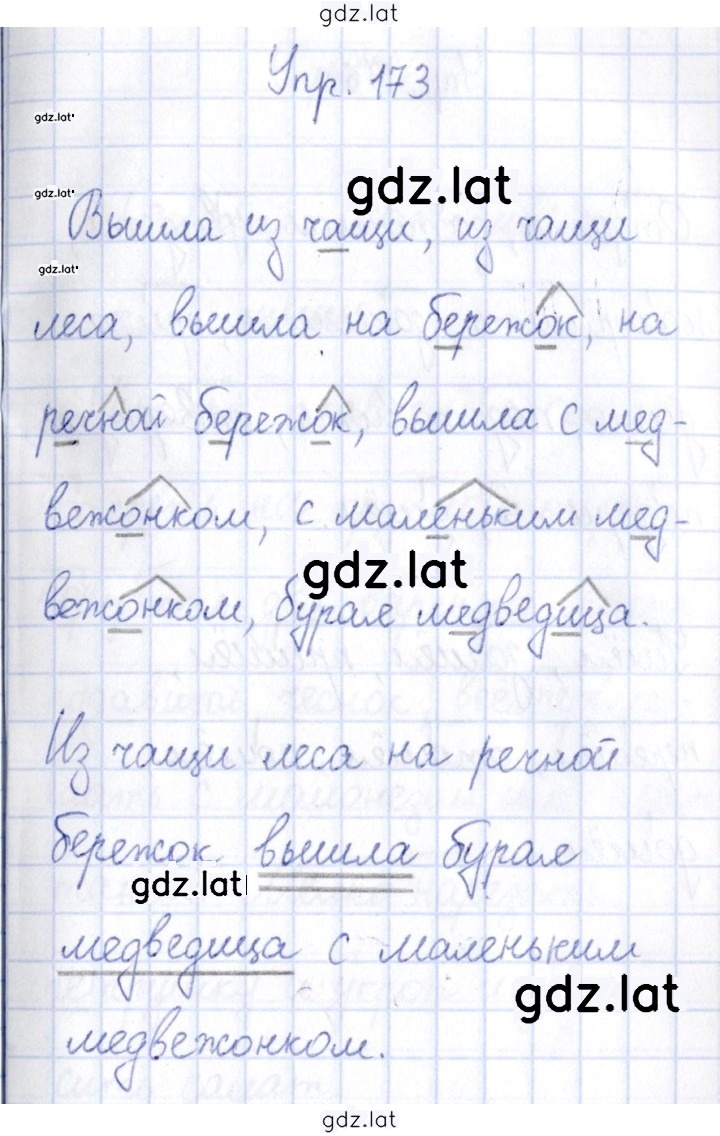 gdz.lat
Упр. 173
gdz.lat
gdz.lat
gdz.lat
Вышла из чащи, из чащи
gdz.lat
леса, вышла на бережок, на
речной бережок, вышла с мед-
вежонком, с маленьким мед-
gdz.lat
вежонком, бурая медведица.
Из чащи леса на речной
бережок вышла бурая
gdz.lat
медведица с маленьким
gdz.lat
медвежонком.
gdz.lat